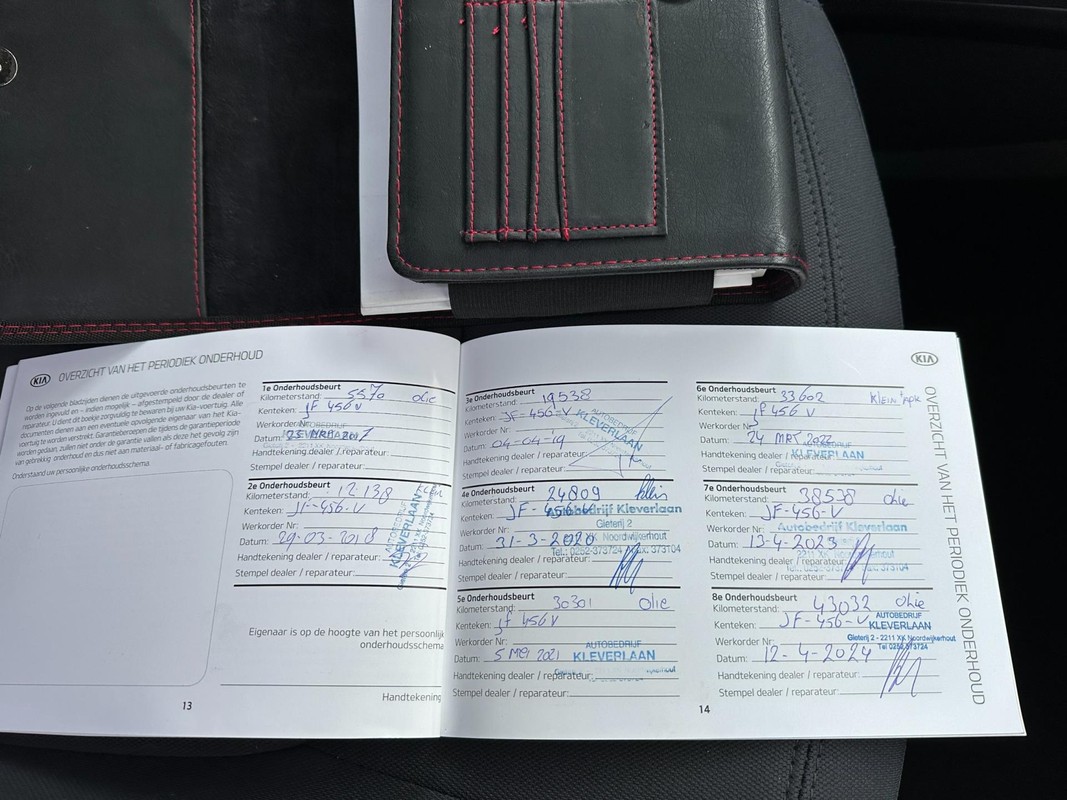 KIA OVERZICHT VAN HET PERIODIEK ONDERHOUD
Op de volgende bladzijden dienen de uitgevoerde onderhoudsbeurten te
worden ingevuld en - indien mogelijk - afgestempeld door de dealer of
reparateur. U dient dit boekje zorgvuldig te bewaren bij uw Kia-voertuig. Alle
documenten dienen aan een eventuele opvolgende eigenaar van het Kia-
voertuig te worden verstrekt. Garantieberoepen die tijdens de garantieperiode
worden gedaan, zullen niet onder de garantie vallen als deze het gevolg zijn
van gebrekkig onderhoud en dus niet aan materiaal- of fabricagefouten.
Onderstaand uw persoonlijke onderhoudsschema.
1e Onderhoudsbeurt
Kilometerstand: 5570 olie
Kenteken: JF 456 V
Werkorder Nr:
Datum: 23 MRT 2017
Handtekening dealer / reparateur:
Stempel dealer / reparateur:
2e Onderhoudsbeurt
Kilometerstand: 12.138 Klein
Kenteken: JF-456-V
Werkorder Nr:
Datum: 29-03-2018
Handtekening dealer / reparateur:
Stempel dealer / reparateur:
AUTOBEDRIJF
KLEVERLAAN
Eigenaar is op de hoogte van het persoonlijk
onderhoudsschema
Handtekening
13
3e Onderhoudsbeurt
Kilometerstand: 19538
Kenteken: JF-456-V
Werkorder Nr:
Datum: 04-04-19
Handtekening dealer / reparateur:
Stempel dealer / reparateur:
AUTOBEDRIJF
KLEVERLAAN
4e Onderhoudsbeurt
Kilometerstand: 24809 klein
Kenteken: JF-456-V
Werkorder Nr:
Datum: 31-3-2020
Handtekening dealer / reparateur:
Stempel dealer / reparateur:
Autobedrijf Kleverlaan
Gieterij 2
XK Noordwijkerhout
Tel.: 0252-373724 Fax. 373104
5e Onderhoudsbeurt
Kilometerstand: 30301 Olie
Kenteken: JF 456 V
Werkorder Nr:
Datum: 5 MEI 2021
Handtekening dealer / reparateur:
Stempel dealer / reparateur:
AUTOBEDRIJF
KLEVERLAAN
KIA
6e Onderhoudsbeurt
Kilometerstand: 33602 Klein + apk
Kenteken: JF 456 V
Werkorder Nr:
Datum: 24 MRT 2022
Handtekening dealer / reparateur:
Stempel dealer / reparateur:
KLEVERLAAN
7e Onderhoudsbeurt
Kilometerstand: 38538 Olie
Kenteken: JF-456-V
Werkorder Nr:
Datum: 13-4-2023
Handtekening dealer / reparateur:
Stempel dealer / reparateur:
Autobedrijf Kleverlaan
2211 XK Noordwijkerhout
8e Onderhoudsbeurt
Kilometerstand: 43032 Olie
Kenteken: JF-456-V
Werkorder Nr:
Datum: 12-4-2024
Handtekening dealer / reparateur:
Stempel dealer / reparateur:
AUTOBEDRIJF
KLEVERLAAN
Gieterij 2 - 2211 XK Noordwijkerhout
Tel 0252 373724
14
OVERZICHT VAN HET PERIODIEK ONDERHOUD